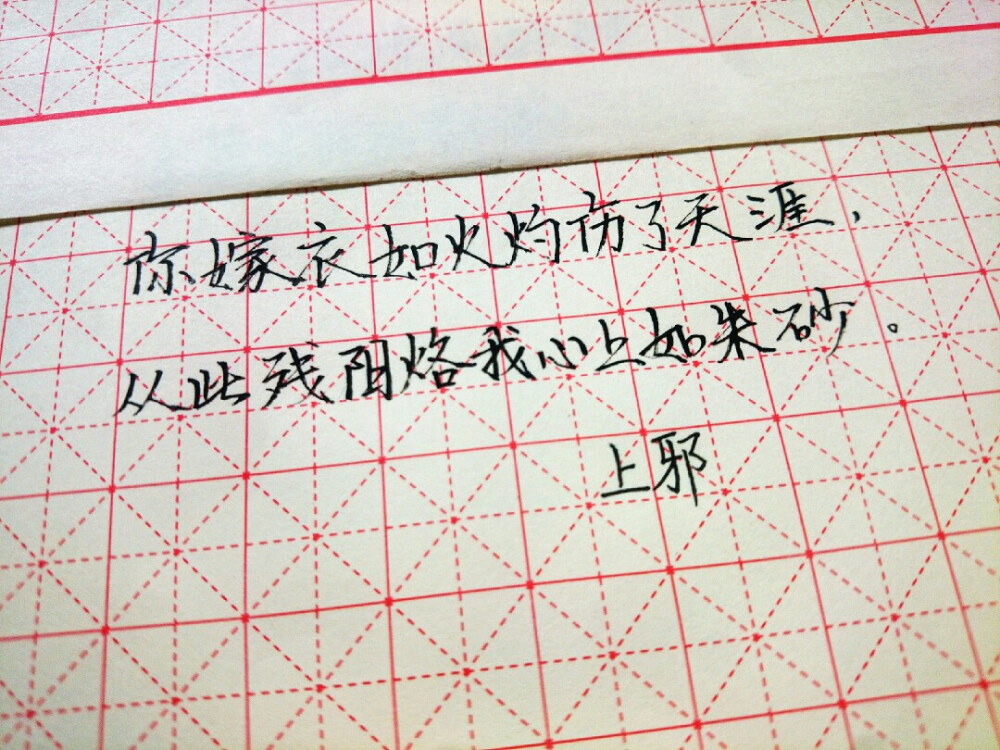 你嫁衣如火灼伤了天涯，
从此残阳烙我心上如朱砂。
上邪